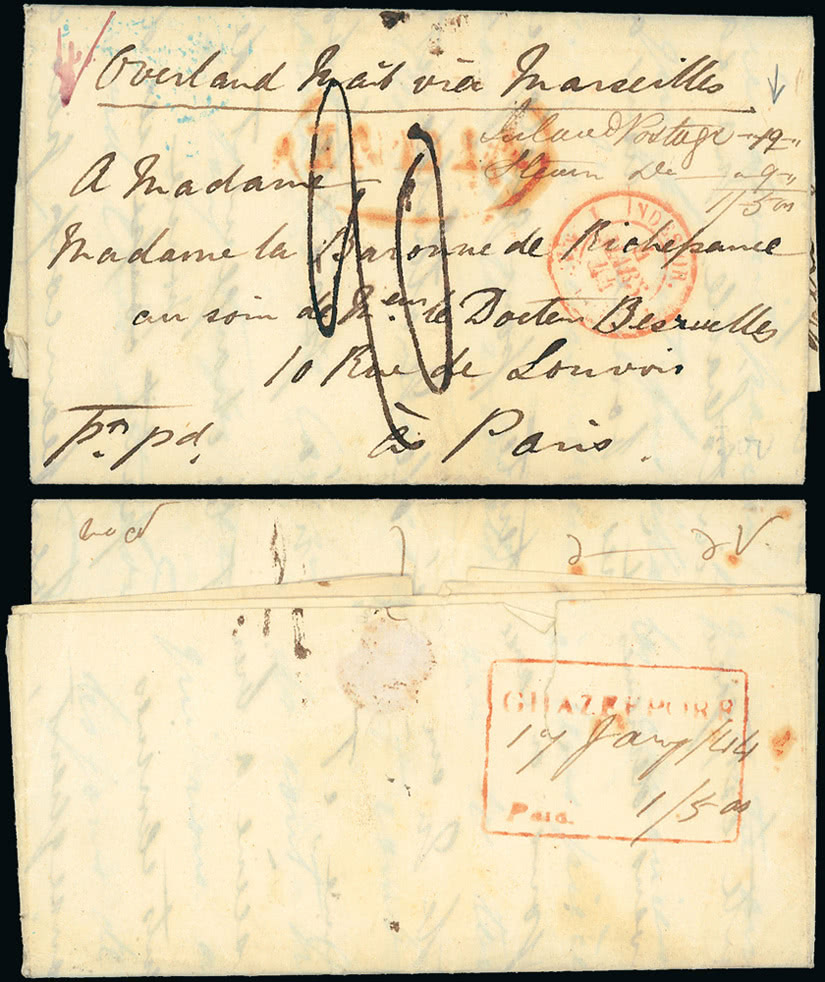 Overland Mail via Marseilles
INDIA
Inland Postage - 12 "
Steam Do - " 9 "
1/5 as
A Madame
Madame la Baronne de Richepance
au soin de M.eur le Docteur Besruelles
10 Rue de Louvois
à Paris.
pr. pd.
INDES OR.
MARS
44
GHAZEEPORE
17 Jany/44
Paid. 1/5 as